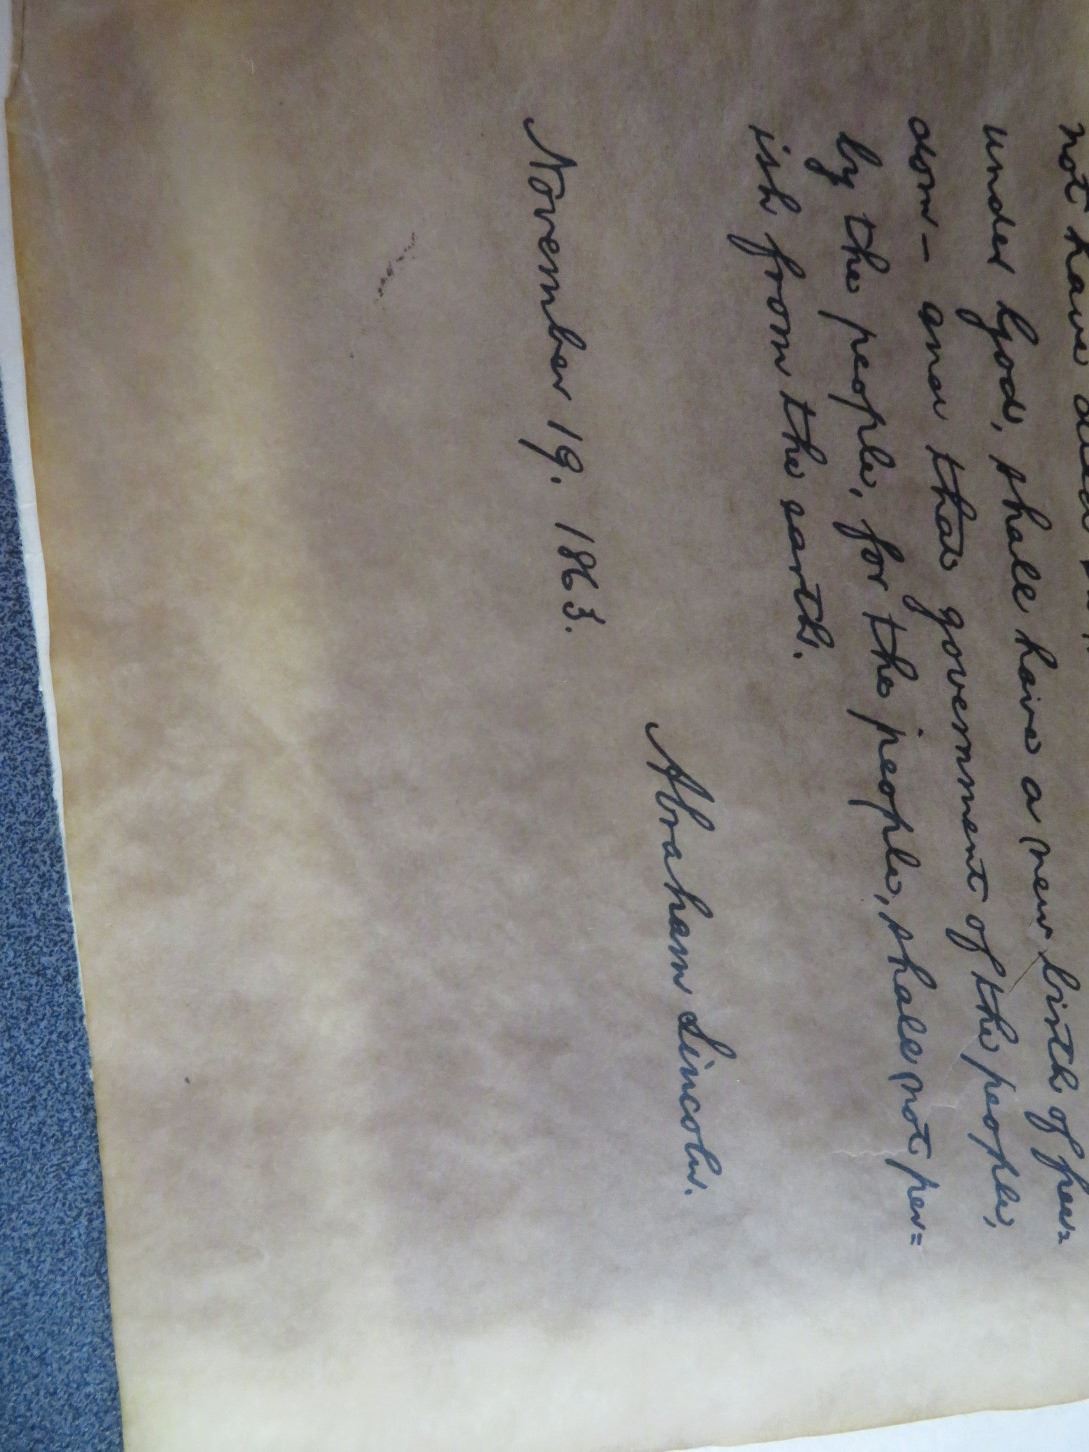 not have died
under God, shall have a new birth of free=
dom - and that government of the people,
by the people, for the people, shall not per=
ish from the earth.
Abraham Lincoln.
November 19. 1863.